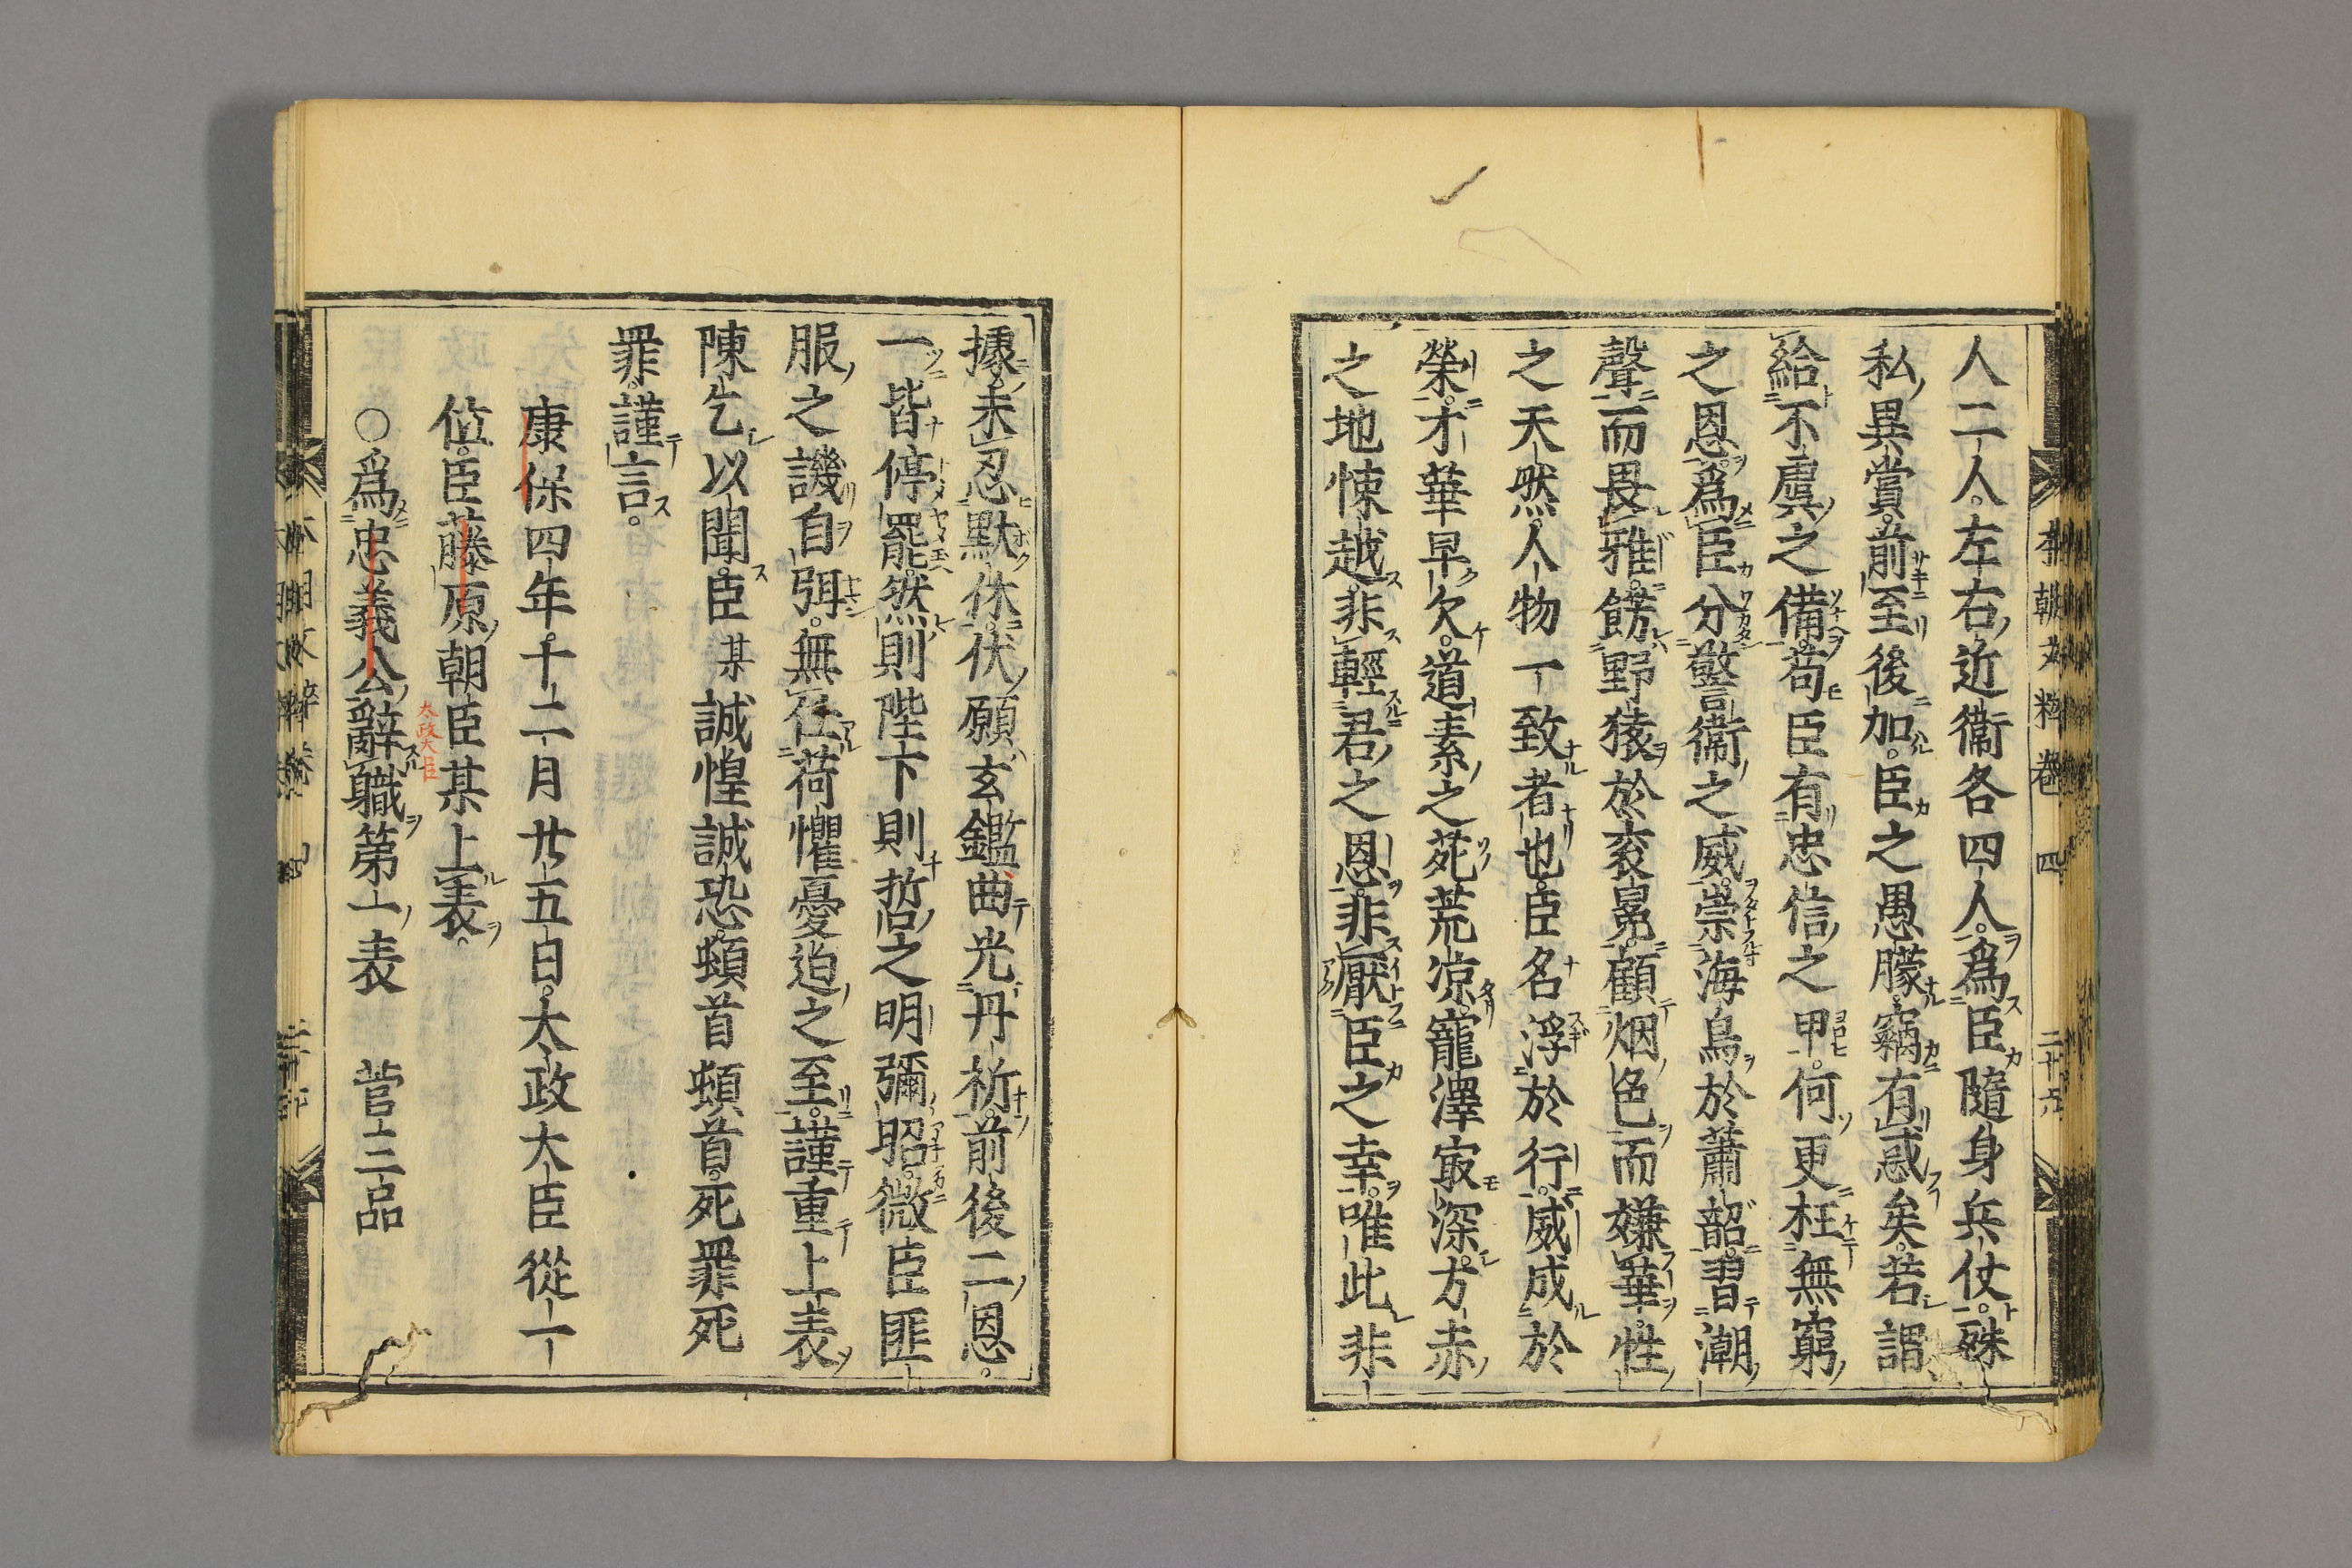 人二人。左右近衞各四人。爲臣隨身兵仗。殊
私異賞。前至後加。臣之愚朦。竊有惑矣。若謂
給不虞之備。苟臣有忠信之甲。何更枉無窮
之恩。爲臣分警衞之威。崇海鳥於蕭韶。習潮
聲而畏雅。餝野猿於衮冕。顧烟色而嫌華。性
之天然。人物一致者也。臣名浮於行。威成於
榮。才華早欠。道素之苑荒凉。寵澤㝡深。方赤
之地悚越。非輕君之恩。非厭臣之幸。唯此非
據。未忍默休。伏願玄鑑曲光丹祈。前後二恩。
一皆停罷。然則陛下則哲之明彌昭。微臣匪
服之譏自弭。無任荷懼憂迫之至。謹重上表
陳乞以聞。臣某誠惶誠恐。頓首頓首。死罪死
罪。謹言。
康保四年十二月廿五日。太政大臣從一
位。臣藤原朝臣某上表。
太政大臣
○爲忠義公辭職第一表　菅三品
本朝文粹卷四
二十六